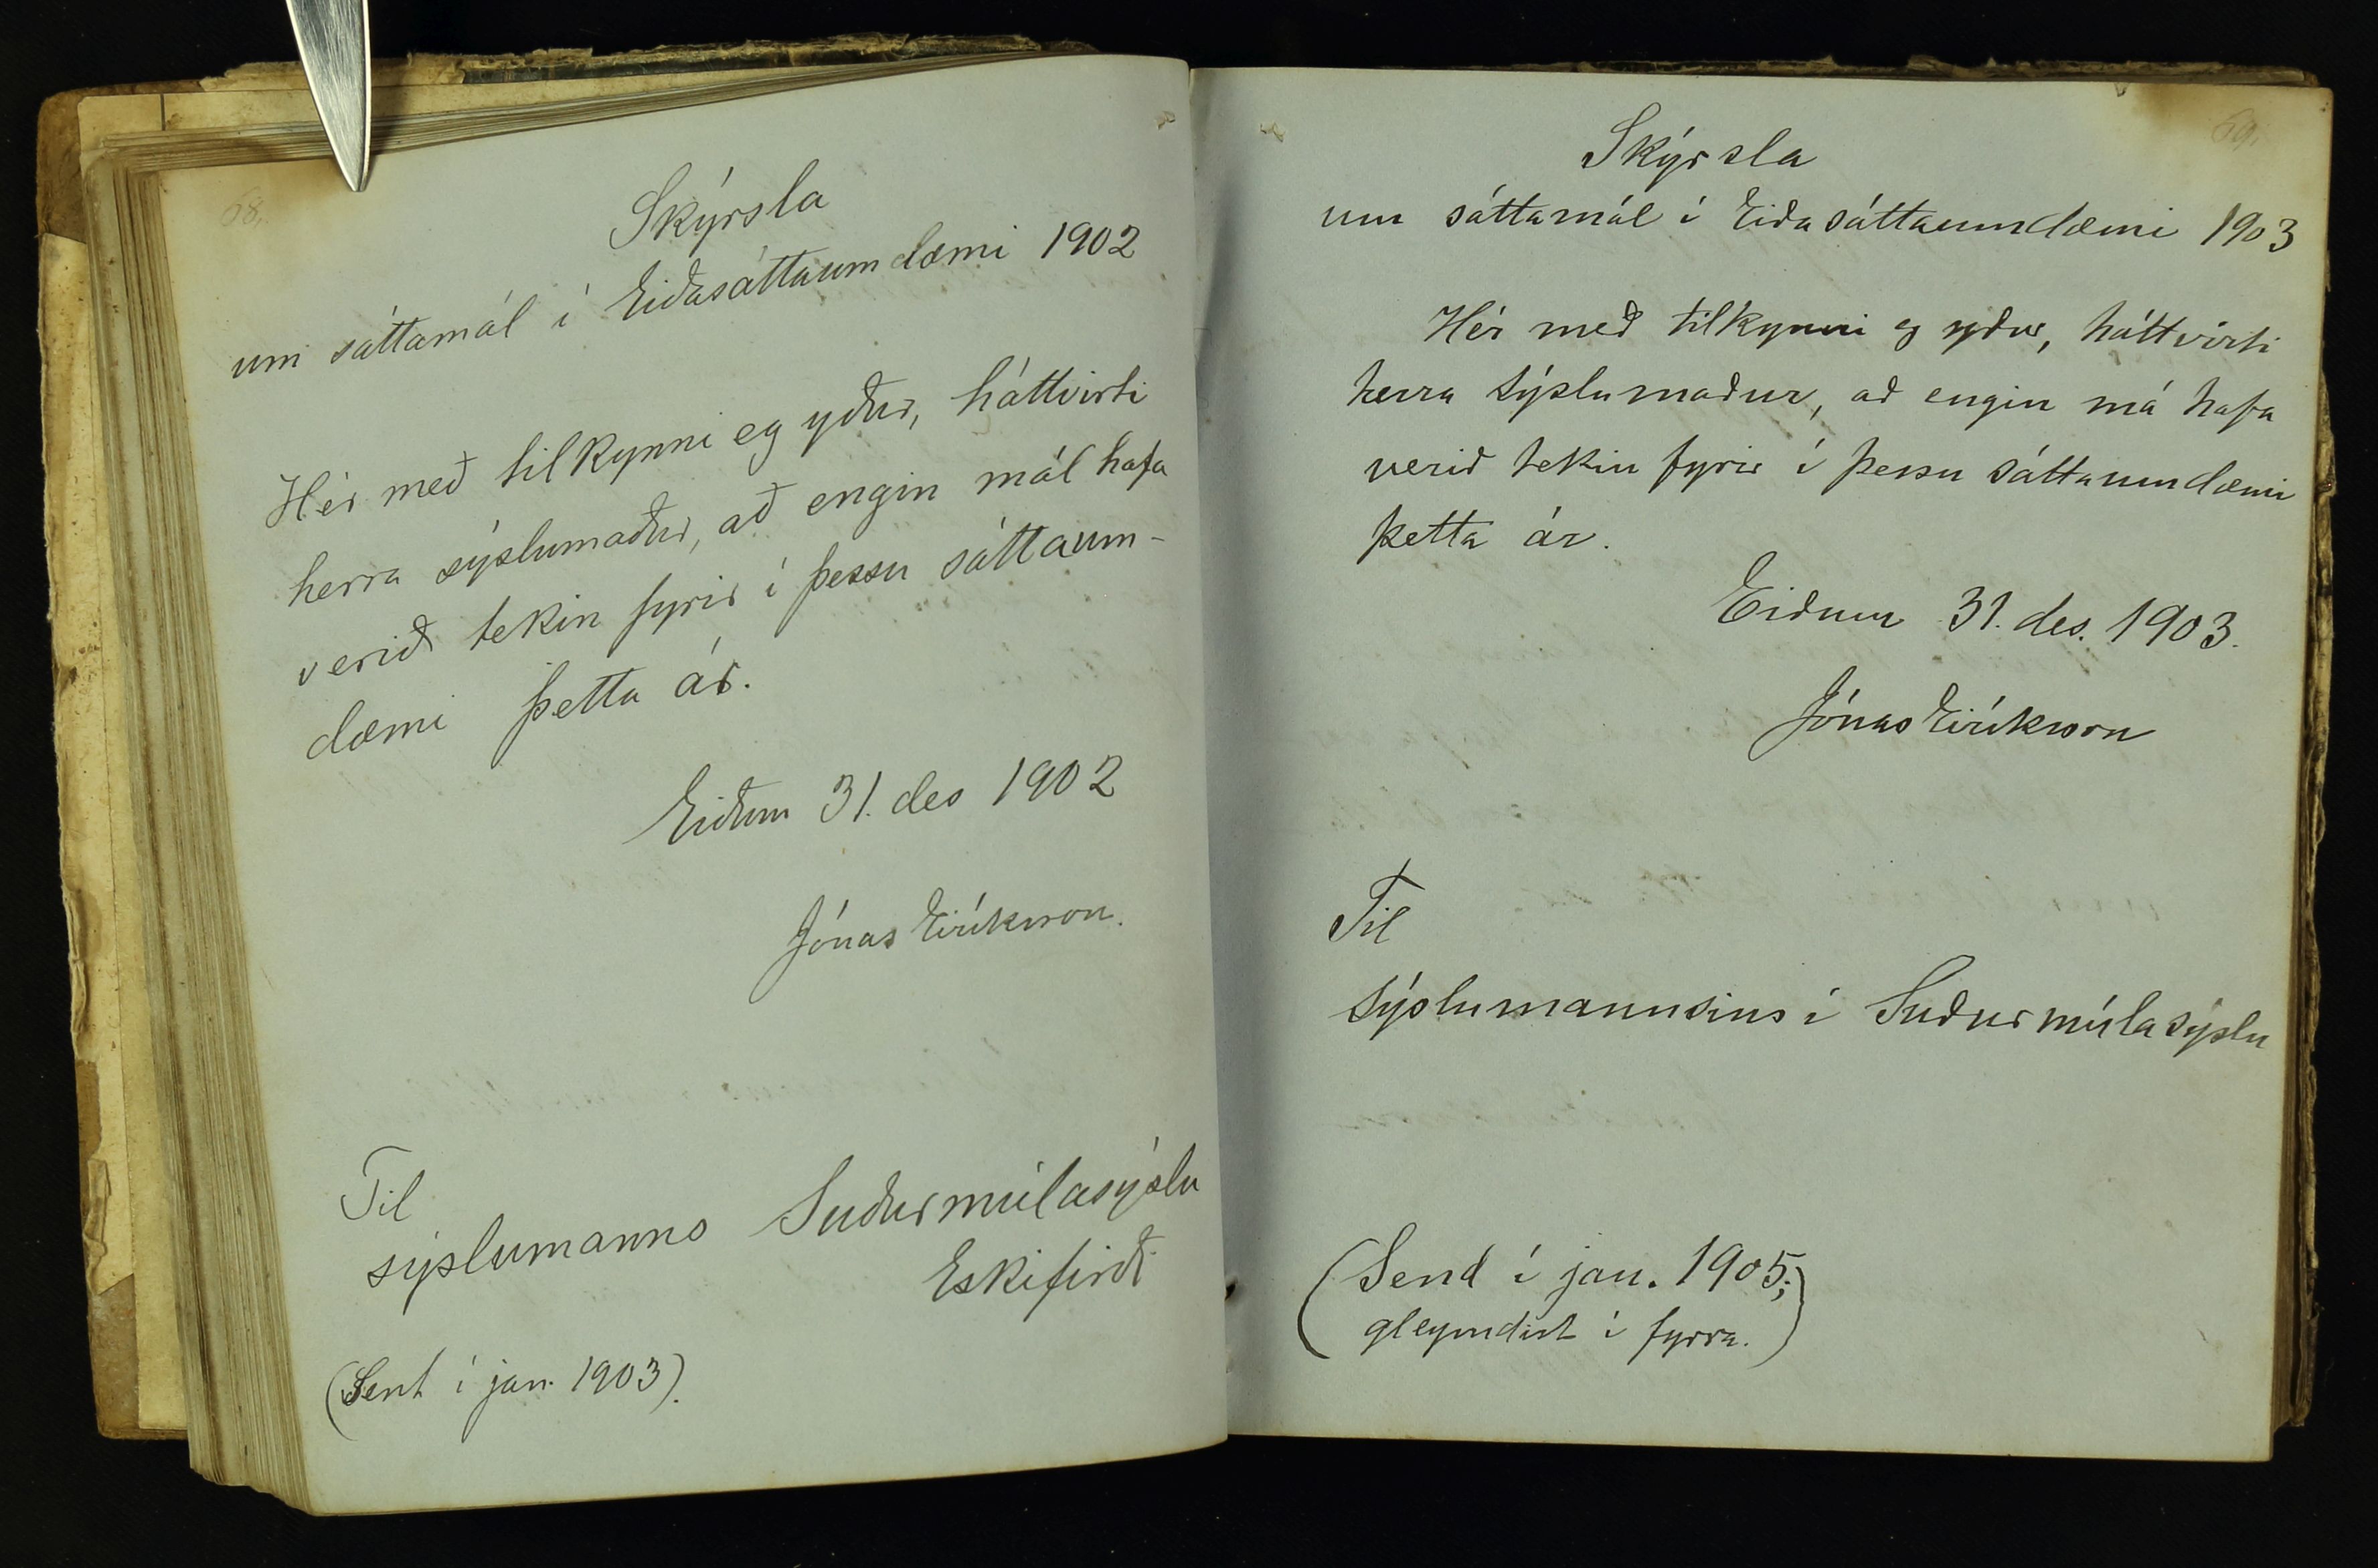 68.
Skýrsla
um sáttamál í Eiðasáttaumdæmi 1902
Hér með tilkynni eg yður, háttvirti
herra sýslumaður, að engin mál hafa
verið tekin fyrir í þessu sáttaum-
dæmi þetta ár.
Eiðum 31. des 1902
Jónas Eiríksson.
Til
sýslumanns Suðurmúlasýslu
Eskifirði
(Sent í jan. 1903).
69.
Skýrsla
um sáttamál í Eiðasáttaumdæmi 1903
Hér með tilkynni eg yður, háttvirti
herra sýslumaður, að engin má hafa
verið tekin fyrir í þessu sáttaumdæmi
þetta ár.
Eiðum 31. des. 1903.
Jónas Eiríksson
Til
sýslumannsins í Suðurmúlasýslu
(Send í jan. 1905;
gleymdist í fyrra.)